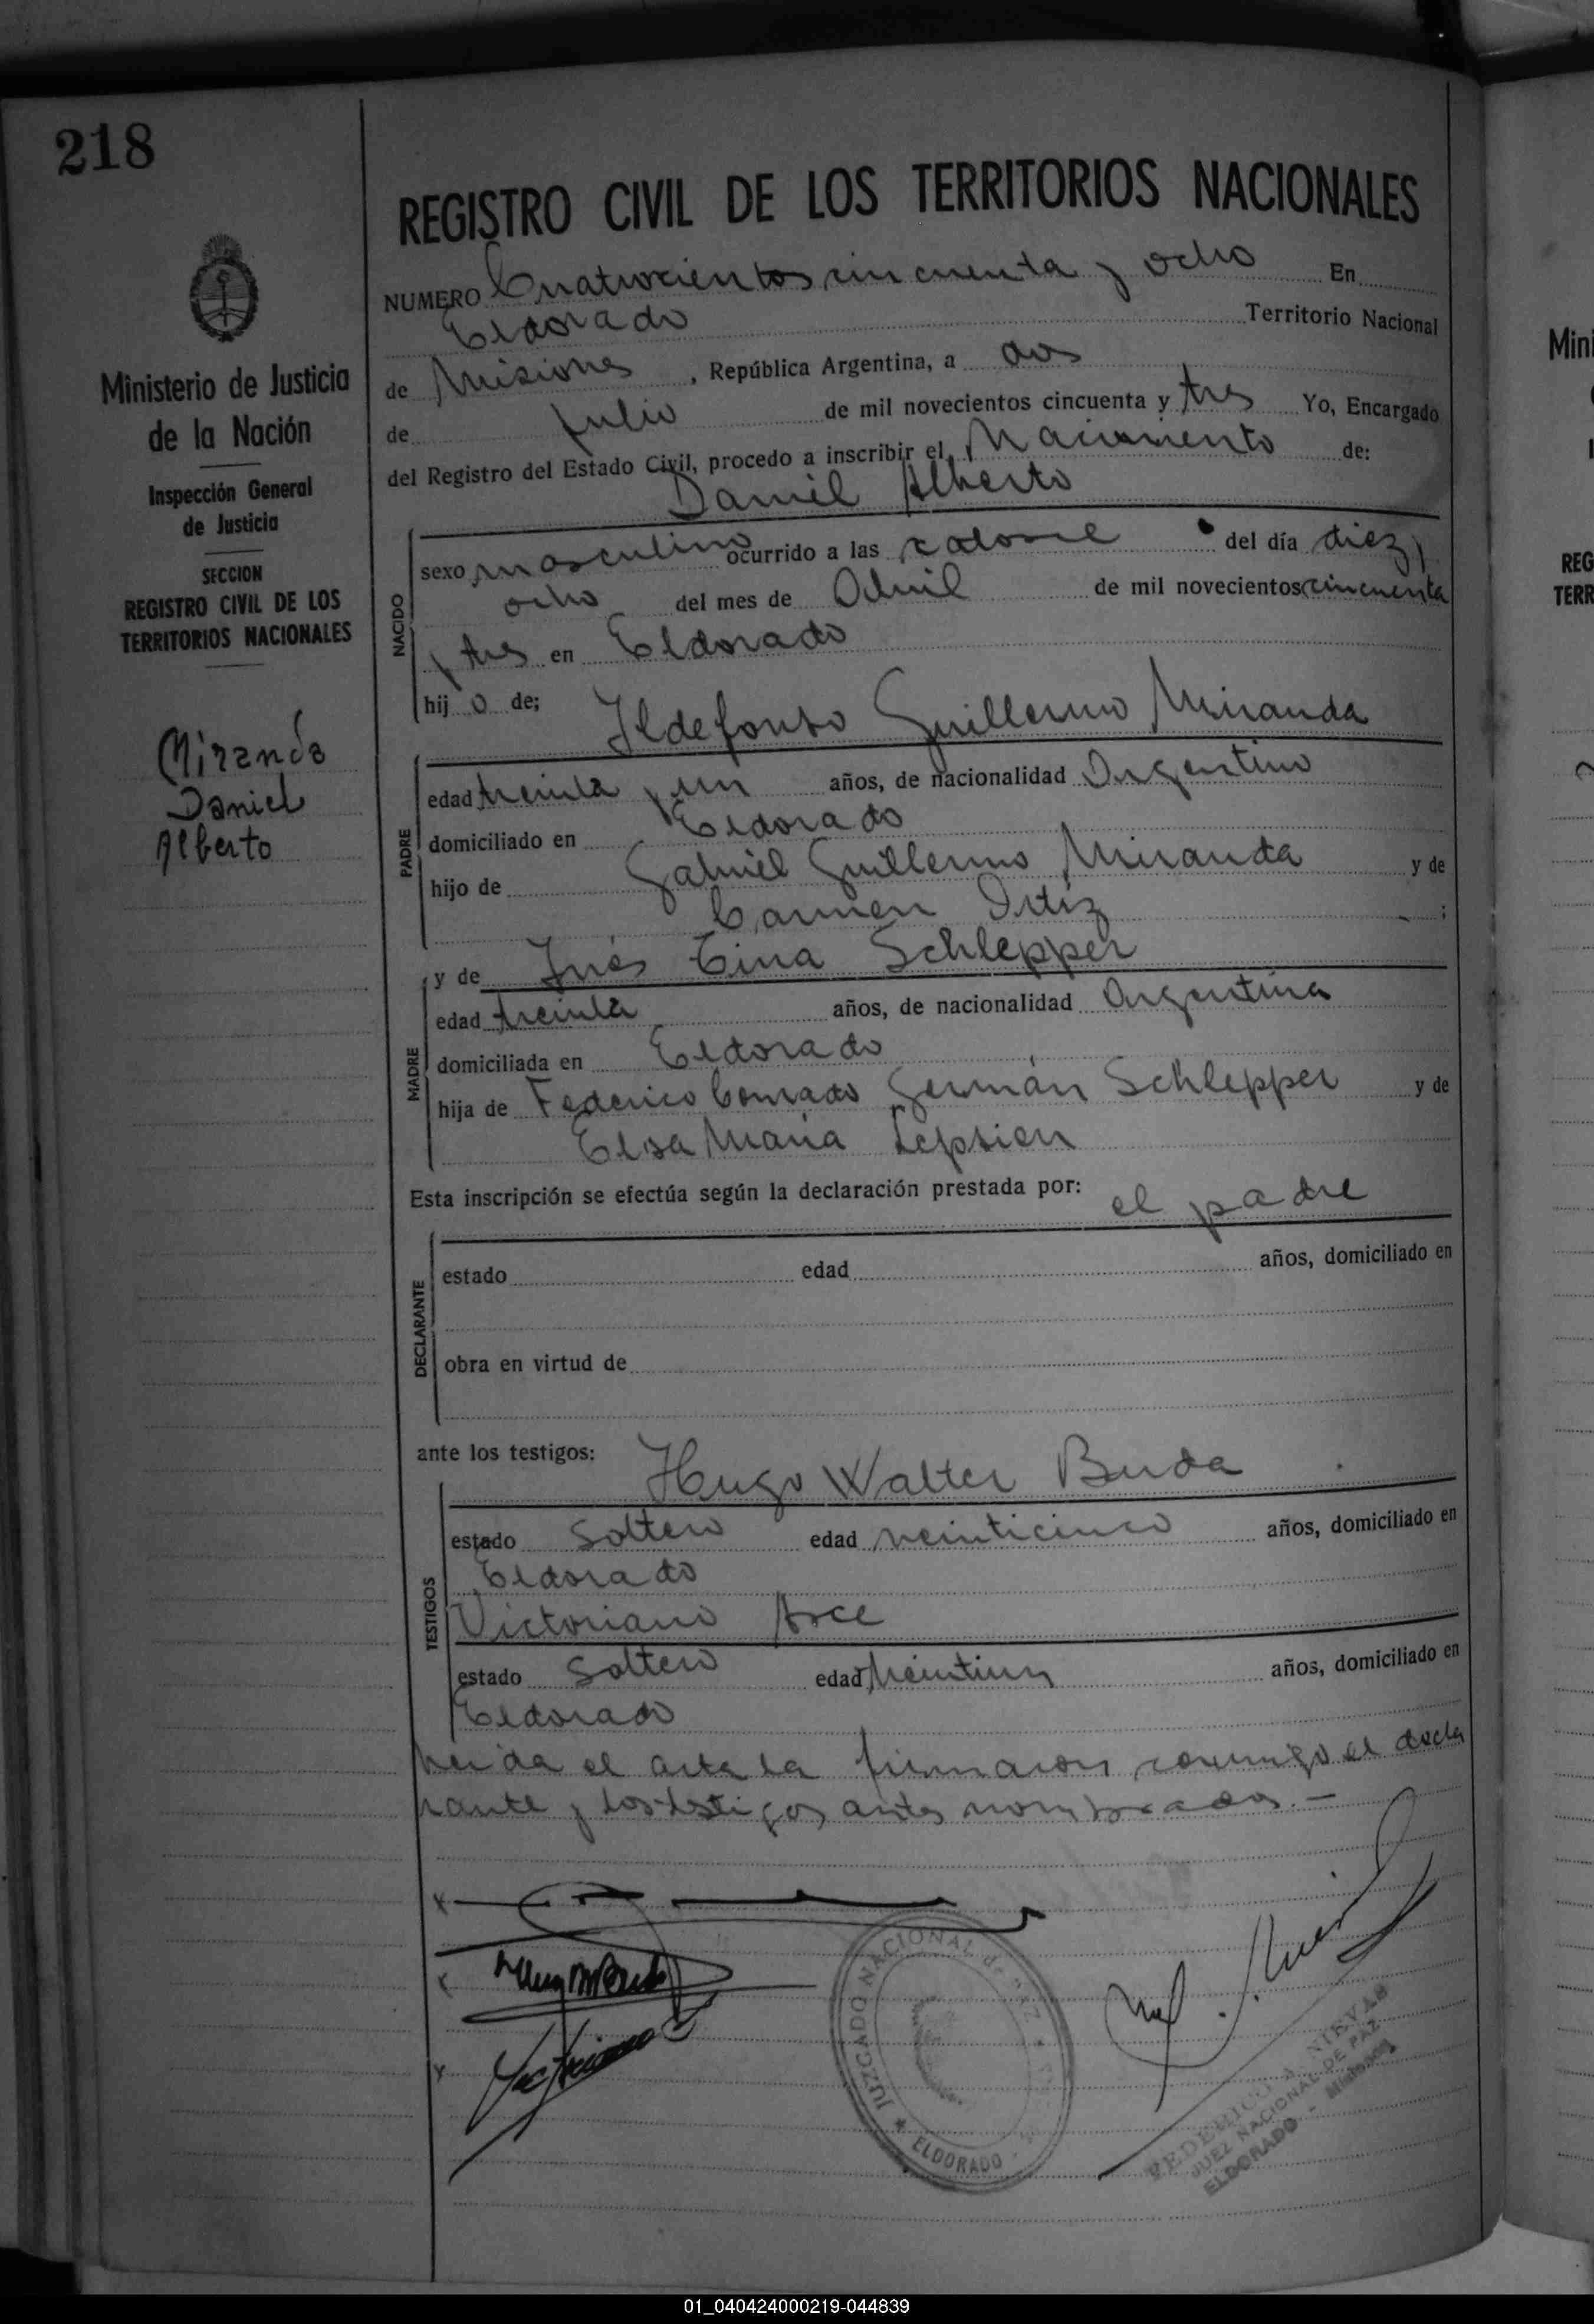 218
REGISTRO CIVIL DE LOS TERRITORIOS NACIONALES
NUMERO Cuatrocientos cincuenta y ocho En
Eldorado Territorio Nacional
de Misiones, República Argentina, a dos
de julio de mil novecientos cincuenta y tres Yo, Encargado
del Registro del Estado Civil, procedo a inscribir el Nacimiento de:
Daniel Alberto
Ministerio de Justicia
de la Nación
Inspección General
de Justicia
SECCION
REGISTRO CIVIL DE LOS
TERRITORIOS NACIONALES
Miranda
Daniel
Alberto
NACIDO
sexo masculino ocurrido a las catorce del día diez y
ocho del mes de Abril de mil novecientos cincuenta
y tres en Eldorado
hijo de; Ildefonso Guillermo Miranda
PADRE
edad treinta y un años, de nacionalidad Argentino
domiciliado en Eldorado
hijo de Gabriel Guillermo Miranda y de
Carmen Ortiz ;
y de Inés Schlepper
MADRE
edad treinta años, de nacionalidad Argentina
domiciliada en Eldorado
hija de Federico Conrado Germán Schlepper y de
Elsa María Lepsien
Esta inscripción se efectúa según la declaración prestada por: el padre
DECLARANTE
estado edad años, domiciliado en
obra en virtud de
ante los testigos: Hugo Walter Buda
TESTIGOS
estado soltero edad veinticinco años, domiciliado en
Eldorado
Victoriano Arce
estado soltero edad veintiun años, domiciliado en
Eldorado
Leida el acta la firmaron conmigo el decla
rante y los testigos antes nombrados.-
x
x
x
JUZGADO NACIONAL de PAZ
ELDORADO
FEDERICO A. NIEVAS
JUEZ NACIONAL DE PAZ
ELDORADO - Misiones
Mini
REG
TERR
01_040424000219-044839